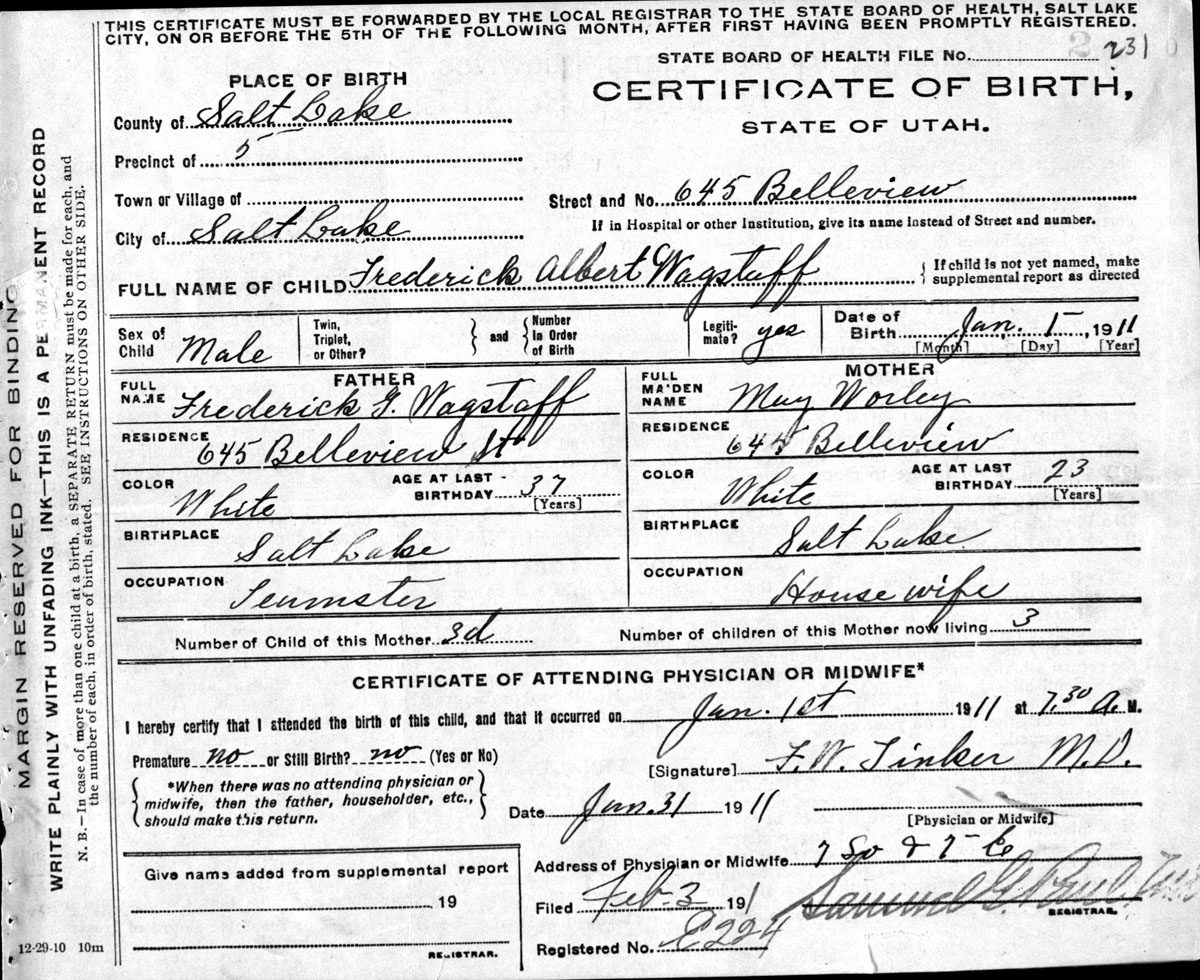 THIS CERTIFICATE MUST BE FORWARDED BY THE LOCAL REGISTRAR TO THE STATE BOARD OF HEALTH, SALT LAKE
CITY, ON OR BEFORE THE 5TH OF THE FOLLOWING MONTH, AFTER FIRST HAVING BEEN PROMPTLY REGISTERED.
STATE BOARD OF HEALTH FILE No. 231
PLACE OF BIRTH
CERTIFICATE OF BIRTH,
STATE OF UTAH.
County of Salt Lake
Precinct of 5
Town or Village of
Street and No. 645 Belleview
If in Hospital or other Institution, give its name instead of Street and number.
City of Salt Lake
FULL NAME OF CHILD Frederick Albert Wagstaff
If child is not yet named, make
supplemental report as directed
Sex of
Child Male
Twin,
Triplet,
or Other?
and
Number
in Order
of Birth
Legiti-
mate? yes
Date of
Birth Jan. 1, 1911
[Month] [Day] [Year]
FATHER
FULL
NAME Frederick G. Wagstaff
RESIDENCE
645 Belleview St
COLOR
White
AGE AT LAST
BIRTHDAY 37
[Years]
BIRTHPLACE
Salt Lake
OCCUPATION
Teamster
MOTHER
FULL
MAIDEN
NAME May Worley
RESIDENCE
645 Belleview
COLOR
White
AGE AT LAST
BIRTHDAY 23
[Years]
BIRTHPLACE
Salt Lake
OCCUPATION
House wife
Number of Child of this Mother 3d
Number of children of this Mother now living 3
CERTIFICATE OF ATTENDING PHYSICIAN OR MIDWIFE*
I hereby certify that I attended the birth of this child, and that it occurred on Jan. 1st 1911 at 7.30 A. M.
Premature no or Still Birth? no (Yes or No)
[Signature] F. W. Tinker M. D.
*When there was no attending physician or
midwife, then the father, householder, etc.,
should make this return.
Date Jan. 31 1911
[Physician or Midwife]
Give name added from supplemental report
19
REGISTRAR.
Address of Physician or Midwife 7 So &
Filed Feb. 3 191
Samuel G. Paul
REGISTRAR.
Registered No. E224
12-29-10 10m
MARGIN RESERVED FOR BINDING
WRITE PLAINLY WITH UNFADING INK—THIS IS A PERMANENT RECORD
N. B.—In case of more than one child at a birth, a SEPARATE RETURN must be made for each, and
the number of each, in order of birth, stated. SEE INSTRUCTIONS ON OTHER SIDE.